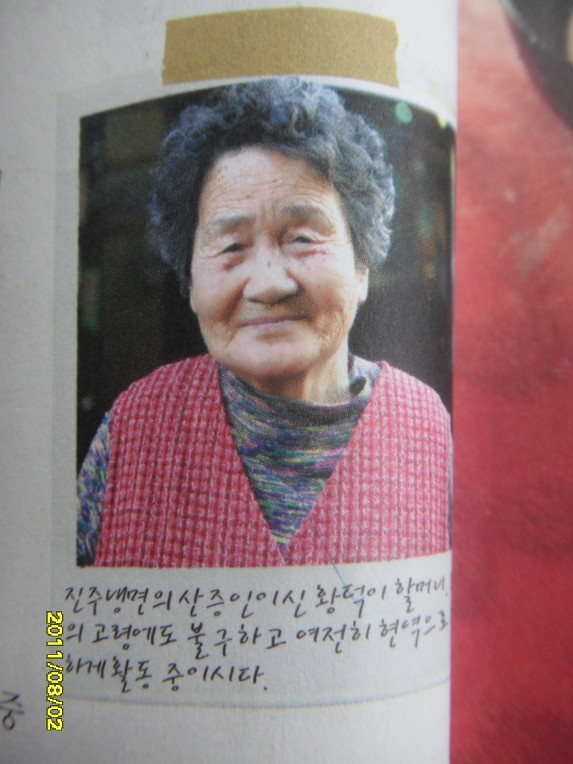 진주냉면의 산 증인이신 황덕이 할머니.
의 고령에도 불구하고 여전히 현역으로
하게 활동 중이시다.
2011/08/02